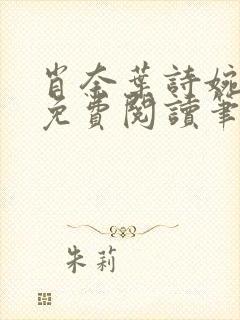 肖奈葉詩婉
免費閱讀筆
朱莉